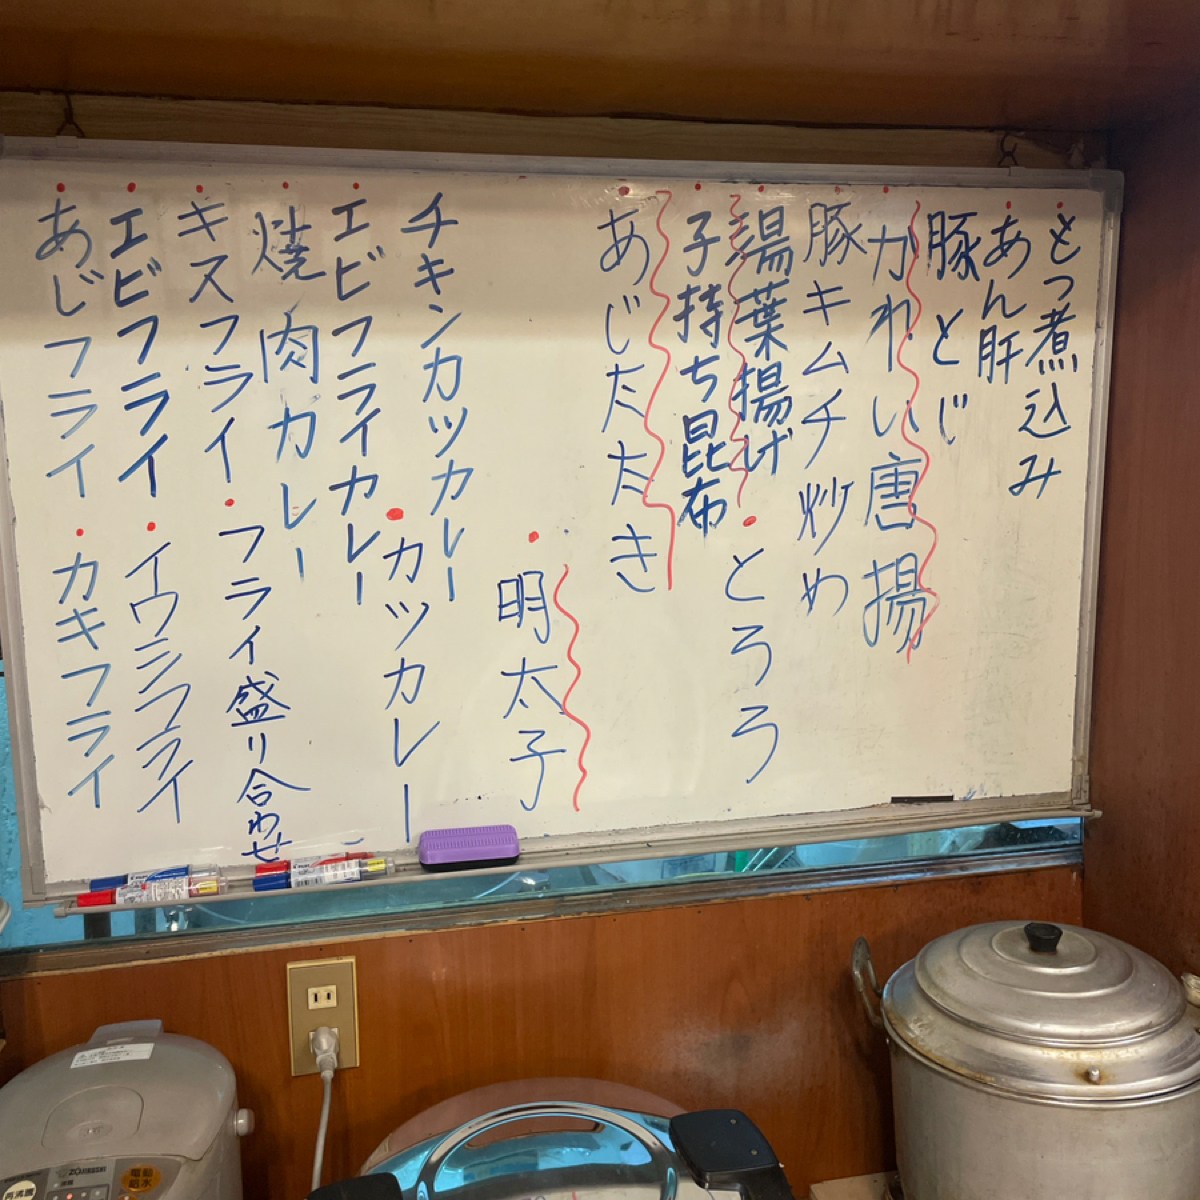 もつ煮込み
あん肝
豚とじ
かれい唐揚
豚キムチ炒め
湯葉揚げ
・とろろ
子持ち昆布
あじたたき
・明太子
チキンカツカレー
・カツカレー
エビフライカレー
焼肉カレー
キスフライ
・フライ盛り合わせ
エビフライ
・イワシフライ
あじフライ
・カキフライ
ZOJIRUSHI
電動給水